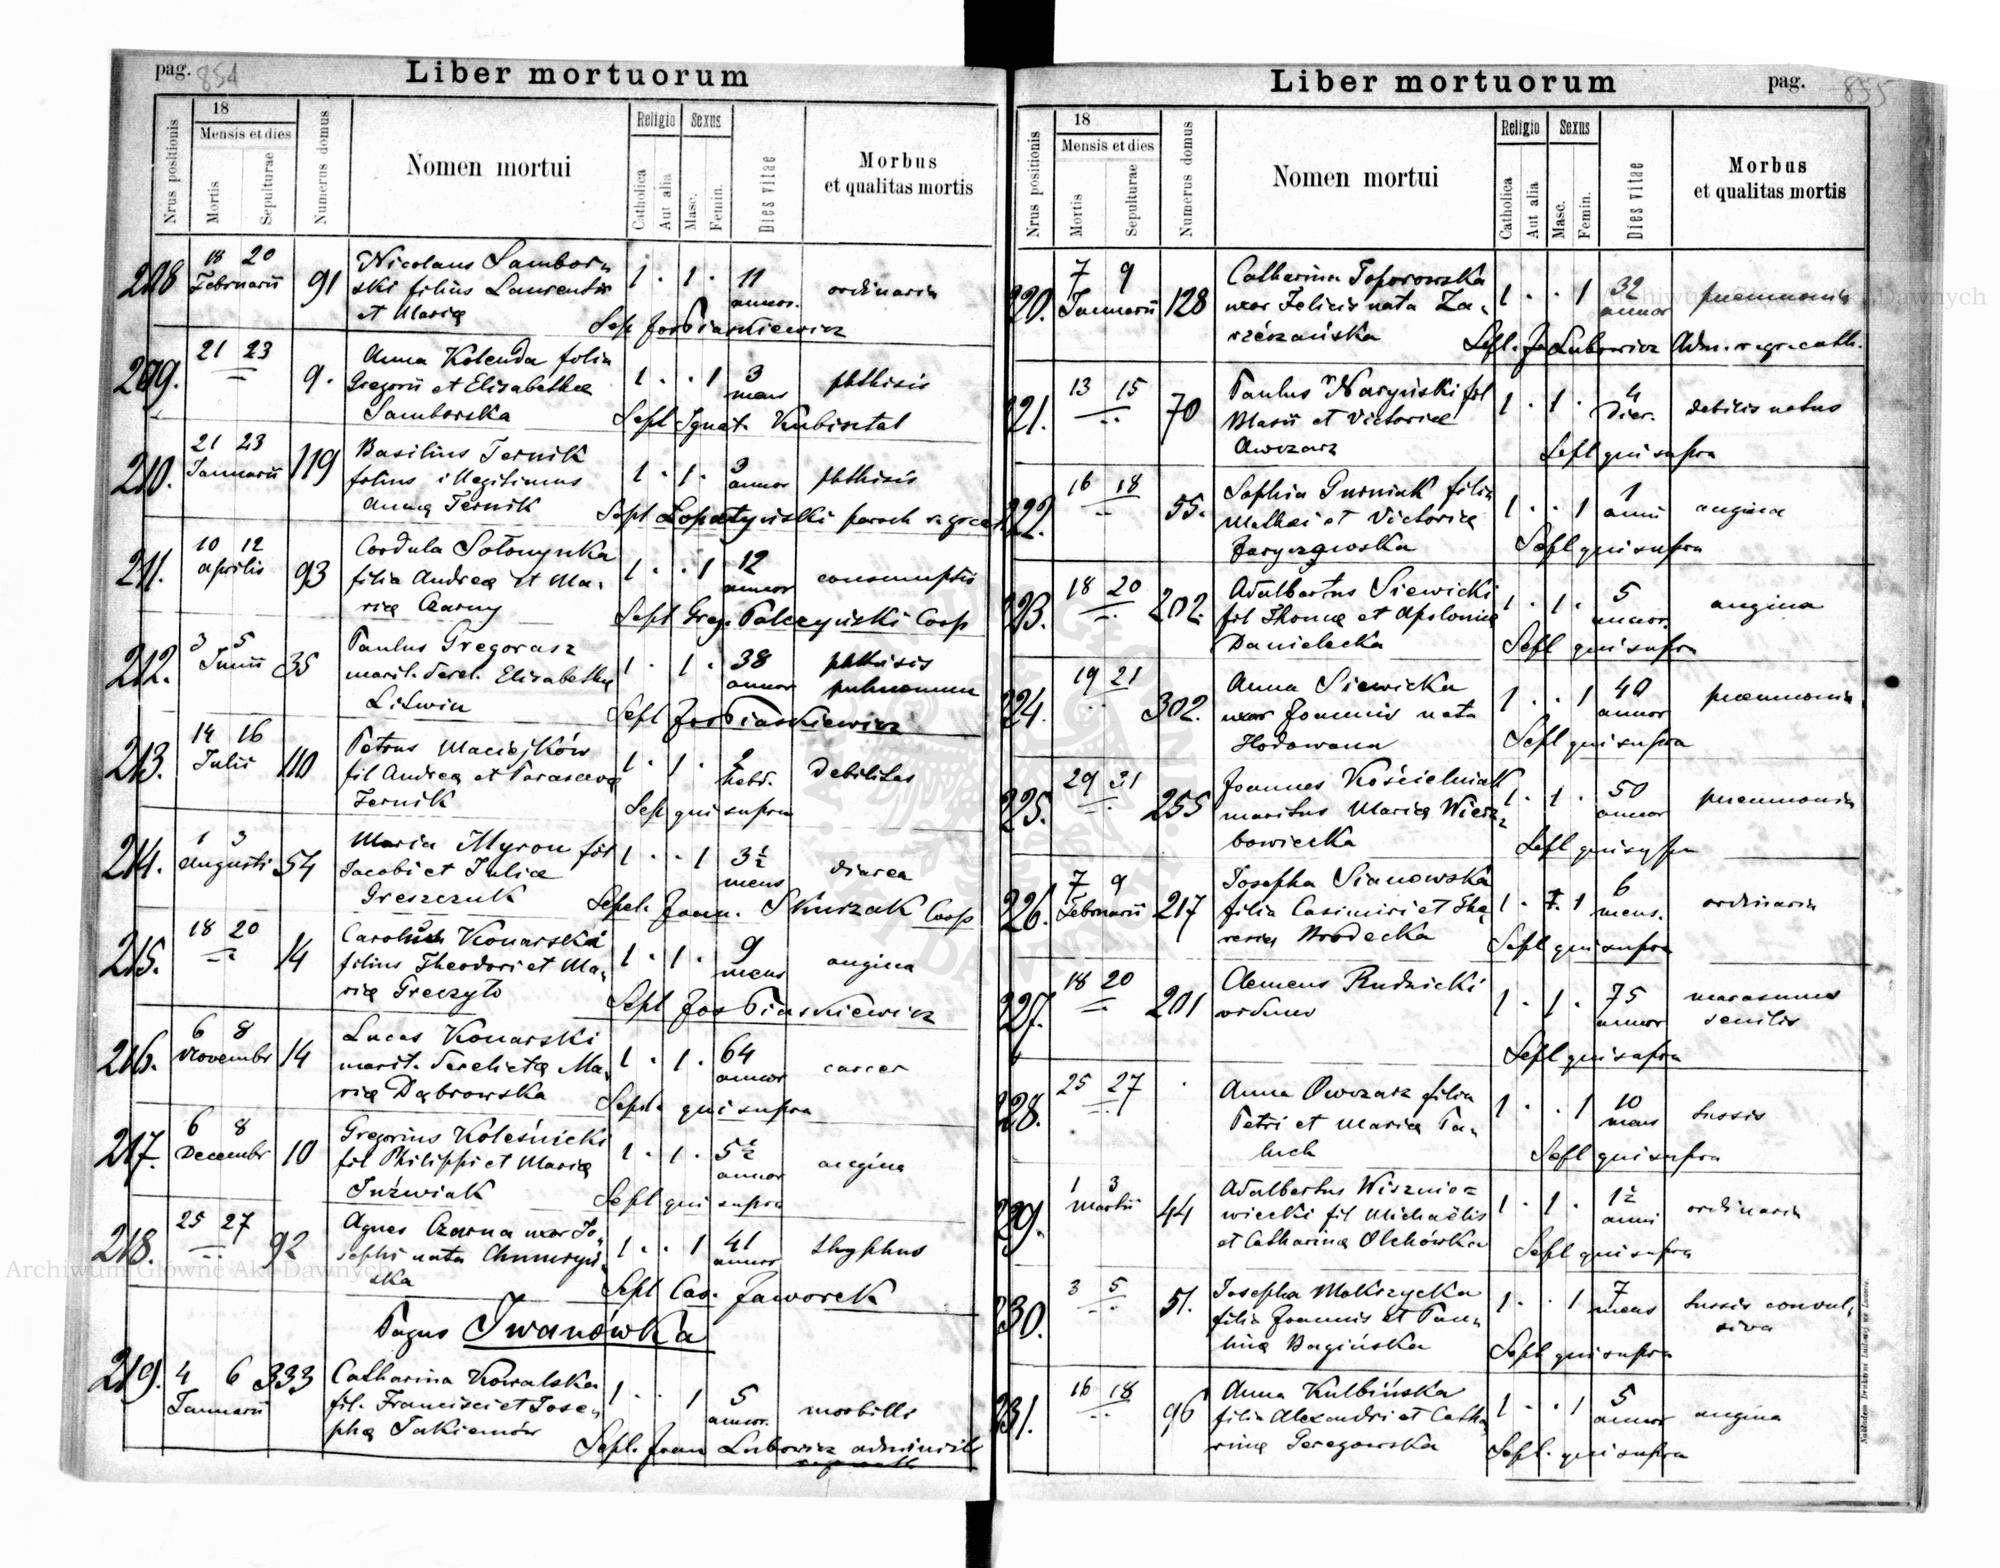 pag. 854
Liber mortuorum
Nrus positionis
18
Mensis et dies
Mortis
Sepulturae
Numerus domus
Nomen mortui
Religio
Catholica
Aut alia
Sexus
Masc.
Femin.
Dies vitae
Morbus
et qualitas mortis
208 18 20 Februarii 91 Nicolaus Sambor- 1 · 1 · 11 annor. ordinaria
ski filius Laurentii
et Mariæ Sep Jos Piaskiewicz
209. 21 23 9. Anna Kolenda filia 1 · · 1 3 mens phthisis
Gregorii et Elisabethæ
Samborska Sepl Ignat. Kubisztal
210. 21 23 Januarii 119 Basilius Fernik 1 · 1 · 3 annor phthisis
filius illegitimus
Annæ Fernik Sepl Lopatyński paroch r. gr. cat
211. 10 12 Aprilis 93 Cordula Sołonynka 1 · · 1 12 annor consumptio
filia Andreæ et Ma-
riæ Czarny Sepl Greg. Palczyński Coop
212. 3 5 Junii 35 Paulus Gregorasz 1 · 1 · 38 annor phthisis
marit. derel. Elisabethæ pulmonum
Litwin Sepl Jos Piaskiewicz
213. 14 16 Julii 110 Petrus Maciejków 1 · 1 · 2 hebd. debilitas
fil Andreæ et Parascevæ
Fernik Sep qui supra
214. 1 3 Augusti 54 Maria Myron fil 1 · · 1 3½ mens diarea
Jacobi et Juliæ
Greszczuk Sepel. Joan. Skurzak Coop
215. 18 20 14 Konarski 1 · 1 · 9 mens angina
filius Theodori et Ma-
riæ Greczyło Sepl Jos Piaskiewicz
216. 6 8 Novembr 14 Lucas Konarski 1 · 1 · 64 annor cancer
marit. derelictæ Ma-
riæ Dąbrowska Sepl. qui supra
217. 6 8 Decembr 10 Gregorius Koleśnicki 1 · 1 · 5½ annor angina
fil Philippi et Mariæ
Juźwiak Sepl qui supra
218. 25 27 92 Agnes Czarna uxor Jo- 1 · · 1 41 annor thyphus
sephi nata Chmuryń-
ska Sepl Cas. Jaworek
Pagus Iwanówka
219. 4 6 Januarii 333 Catharina Kowalska 1 · · 1 5 annor. morbilli
fil. Francisci et Jose-
phæ Jakiemów Sepl. Joan Lubowicz
pag. 855
Liber mortuorum
Nrus positionis
18
Mensis et dies
Mortis
Sepulturae
Numerus domus
Nomen mortui
Religio
Catholica
Aut alia
Sexus
Masc.
Femin.
Dies vitae
Morbus
et qualitas mortis
220. 7 9 Januarii 128 Catharina Toporowska 1 · · 1 32 annor pneumonia
uxor Felicis nata Za-
rzéczańska Sepl. Jo Lubowicz Adm. r. gr. cath.
221. 13 15 70 Paulus Naryński fil 1 · 1 · 4 dier. debilis natus
Blasii et Victoriæ
Owczarz Sepl qui supra
222. 16 18 55. Sophia Gurniak filia 1 · · 1 1 anni angina
Mathæi et Victoriæ
Jaryczewska Sepl qui supra
223. 18 20 202. Adalbertus Siewicki 1 · 1 · 5 annor. angina
fil Thomæ et Apoloniæ
Danielecka Sepl qui supra
224. 19 21 302. Anna Siewicka 1 · · 1 40 annor pneumonia
uxor Joannis nata
Hodowana Sepl qui supra
225. 29 31 255 Joannes Kościelniak 1 · 1 · 50 annor pneumonia
maritus Mariæ Wierz-
bowiecka Sepl qui supra
226. 7 9 Februarii 217 Josepha Sianowska 1 · 1 6 mens. ordinaria
filia Casimiri et The-
resiæ Brodecka Sepl qui supra
227. 18 20 201 Clemens Rudnicki 1 · 1 · 75 annor marasmus
viduus senilis
Sepl qui supra
228. 25 27 Anna Owczarz filia 1 · · 1 10 mens tussis
Petri et Mariæ Pa-
luch Sepl qui supra
229. 1 3 Martii 44 Adalbertus Wisznio- 1 · 1 · 1½ anni ordinaria
wiecki fil Michaëlis
et Catharinæ Olchówka Sepl qui supra
230. 3 5 51. Josepha Mokrzycka 1 · · 1 7 mens tussis convul-
filia Joannis et Pau- siva
linæ Bagińska Sepl qui supra
231. 16 18 96 Anna Kulbińska 1 · · 1 5 annor angina
filia Alexandri et Catha-
rinæ Geregowska Sepl. qui supra
Archiwum Główne Akt Dawnych
Archiwum Główne Akt Dawnych